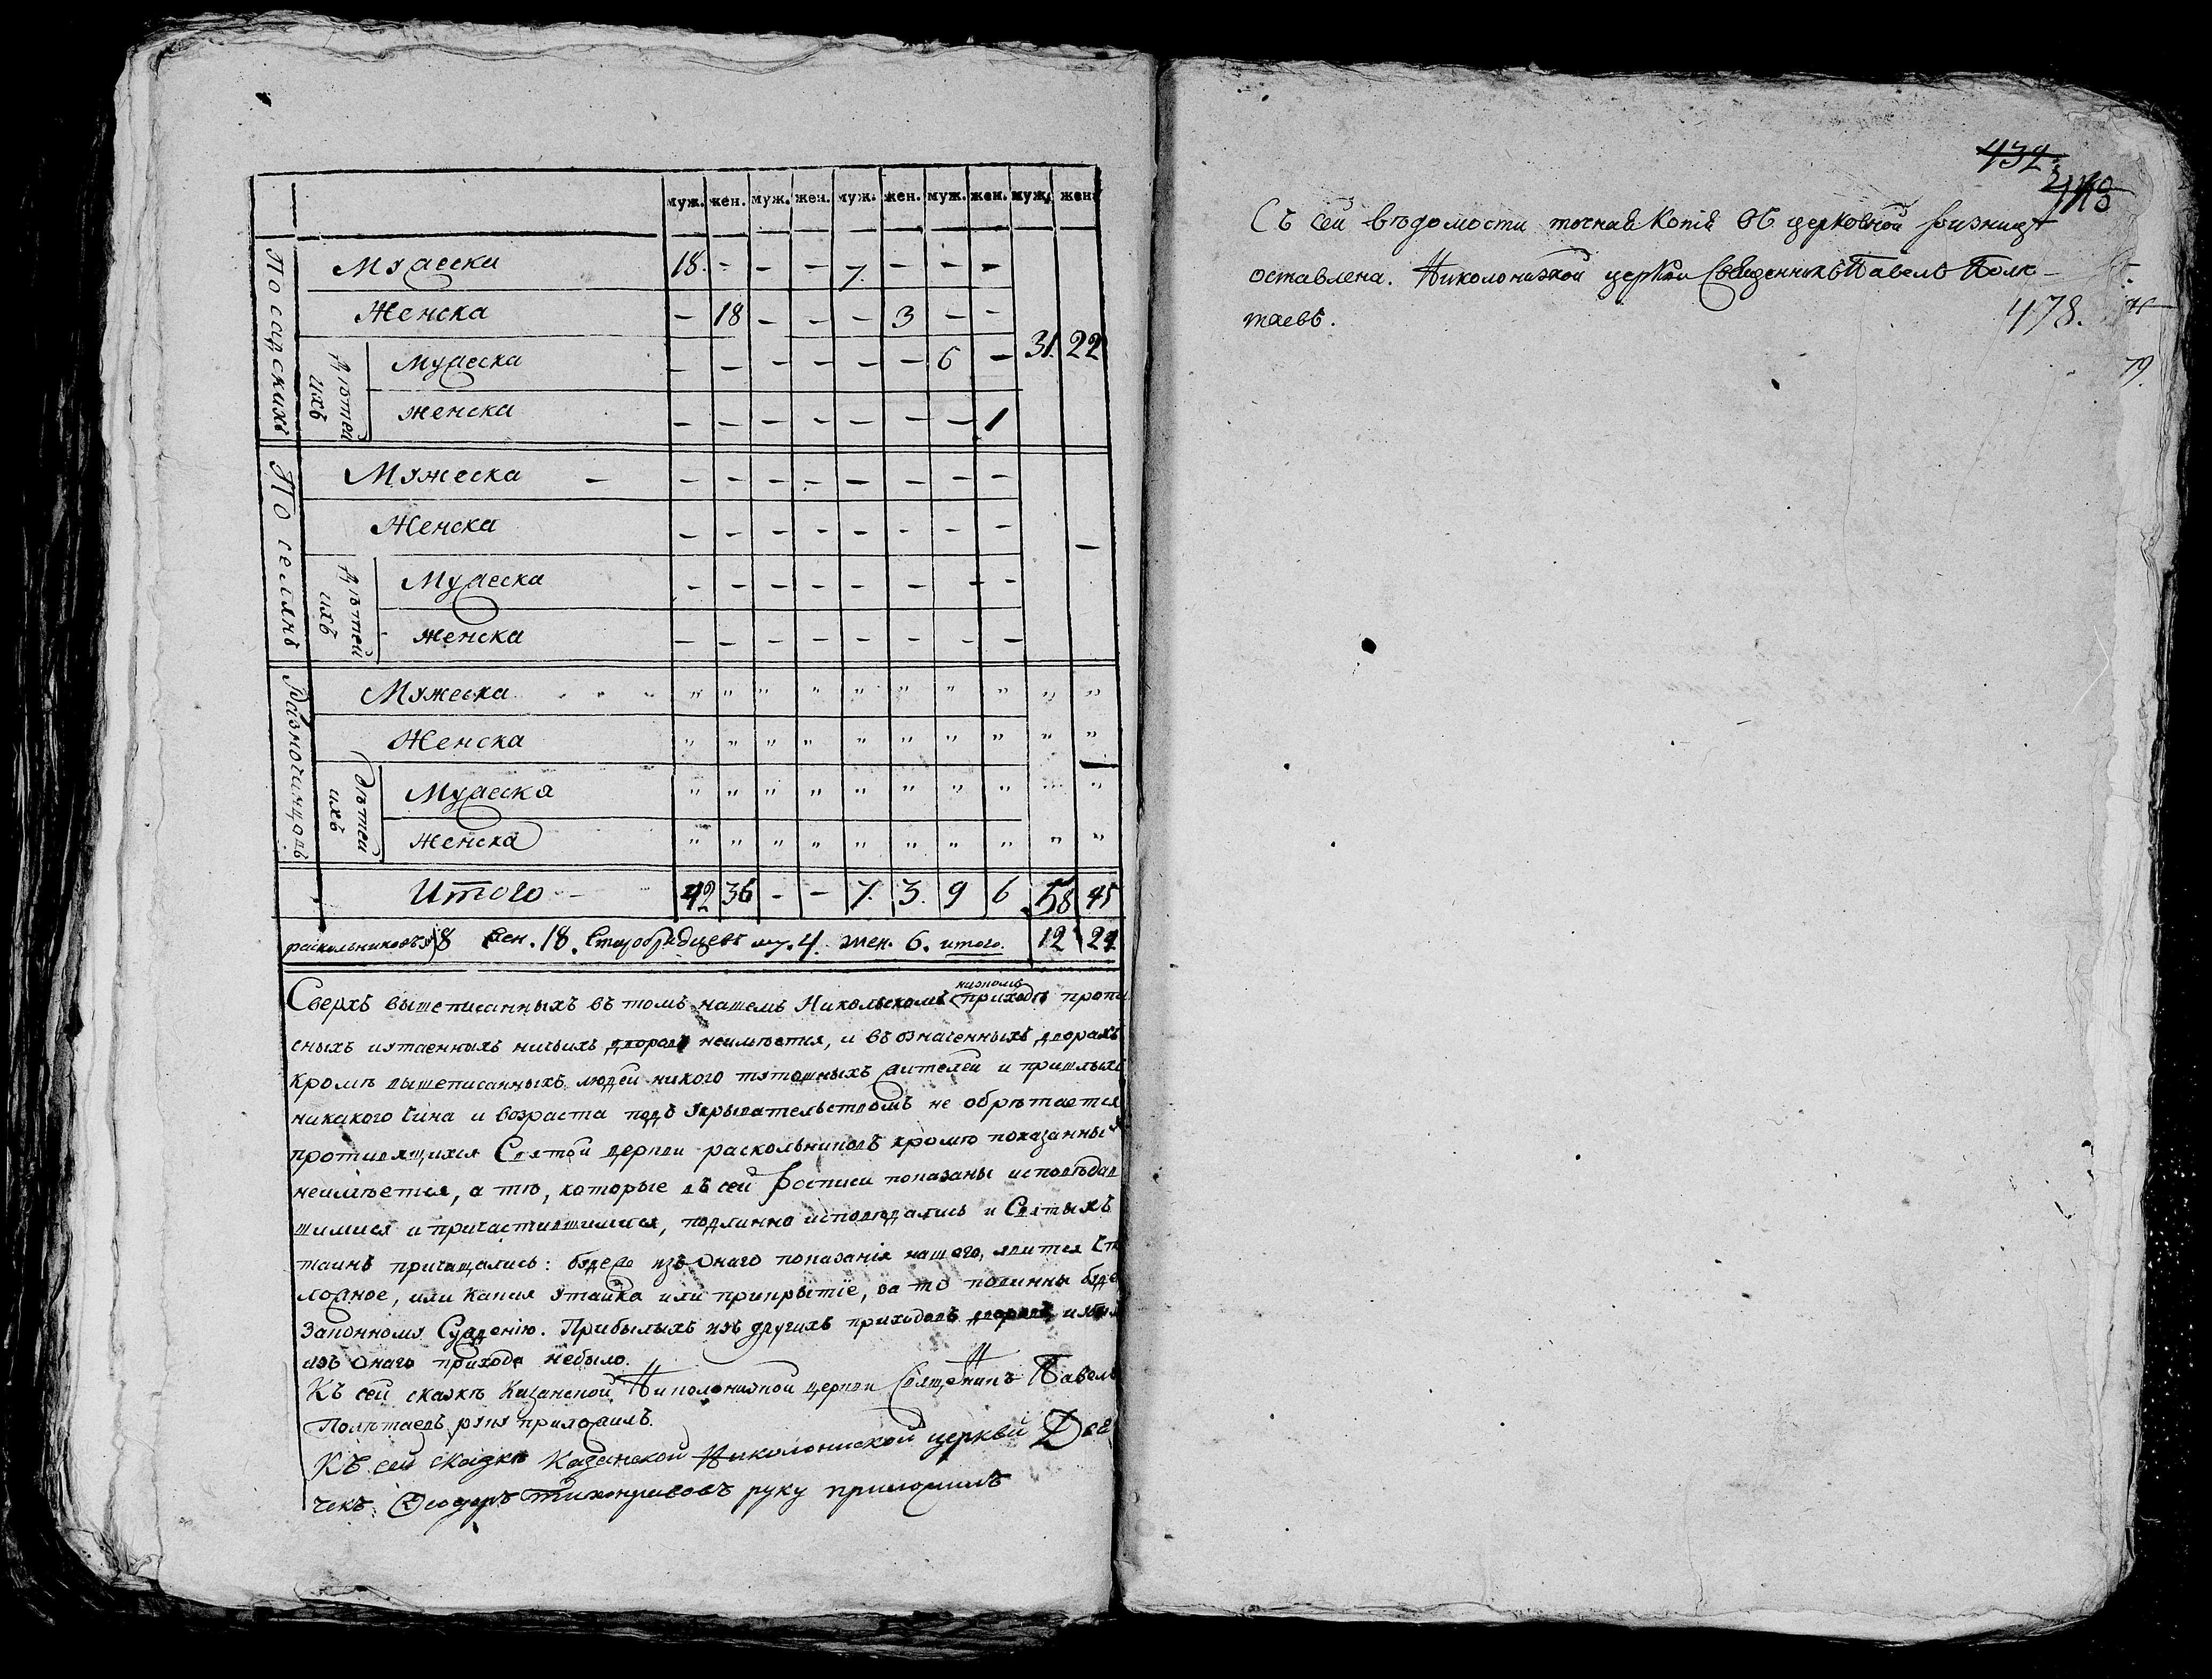 муж. жен. муж. жен. муж. жен. муж. жен. муж. жен
Посадскихъ
Мужеска 18. - - - 7. - - -
Женска - 18 - - - 3 - -
31. 22
Дѣтей ихъ
Мужеска - - - - - - 6 -
женска - - - - - - - 1
Поселянъ
Мужеска - - - - - - - - -
Женска - - - - - - - -
-
Дѣтей ихъ
Мужеска - - - - - - - -
женска - - - - - - - -
Разночинцовъ
Мужеска " " " " " " " " " "
Женска " " " " " " " " " "
дѣтей ихъ
Мужеска " " " " " " " " " "
женска " " " " " " " " " "
Итого - 42 36 - - 7. 3. 9 6 58 45
раскольниковъ 8 жен. 18. Старобрядцевъ му. 4. жен. 6. итого. 12 24
низкомъ
Сверхъ вышеписанныхъ въ томъ нашемъ Никольскомъ приходѣ пропи
сныхъ иутаенныхъ ничьихъ дворовъ неимѣется, и въ означенныхъ дворахъ
кромѣ вышеписанныхъ людей никого тутошныхъ жителей и пришлыхъ
никакого чина и возраста подъ укрывательствомъ не обрѣтается
противящихся Святой церкви раскольниковъ кромѣ показанных
неимѣется, а тѣ, которые въ сей росписи показаны исповѣдав
шимися и причастившимися, подлинно исповѣдались и Святыхъ
таинъ причащались: будеже изъ онаго показанія нашего, явится что
ложное, или какая утайка или прикрытіе, за то повинны буде
законному Сужденію. Прибылыхъ изъ другихъ приходовъ дворовъ
изъ онаго прихода небыло.
Къ сей сказкѣ Казанской Николонизкой церкви Священникъ Павелъ
Полѣтаевъ руку приложилъ.
Къ сей скаскѣ Казанской Николониской церкви Дья
чекъ Ѳеодоръ руку приложилъ
432.
Съ сей вѣдомости точная копія въ церковной ризницѣ
оставлена. Николонизкой церкви Священникъ Павелъ Полѣ-
таевъ.
478.
79.